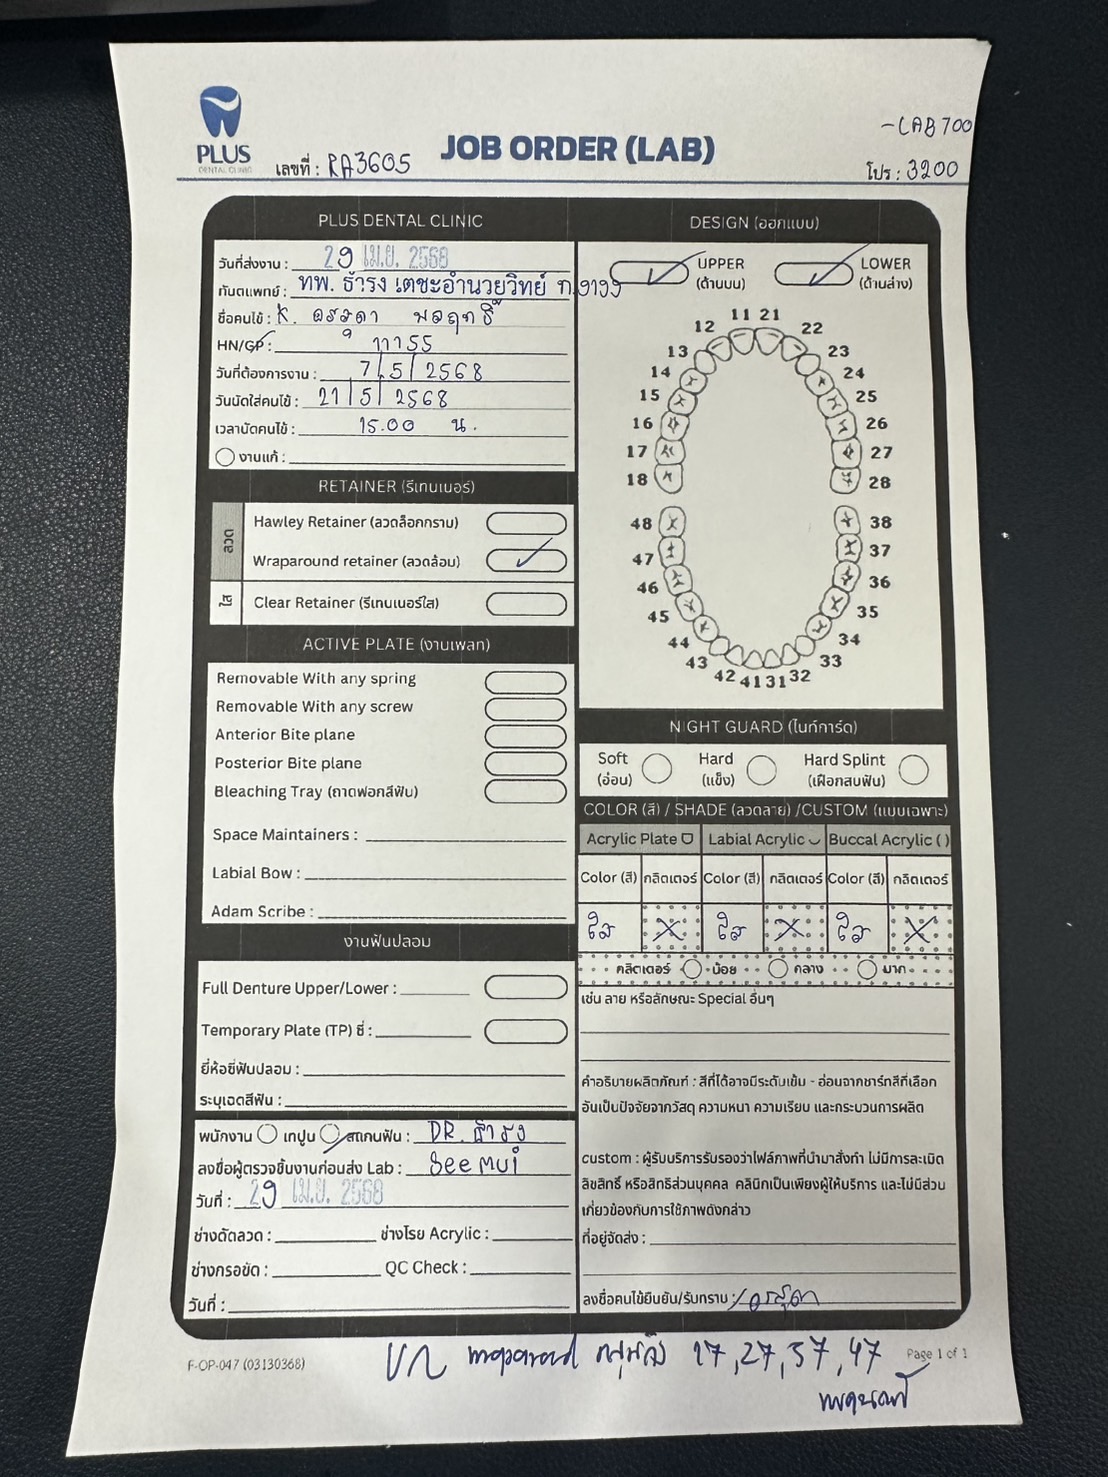 PLUS
DENTAL CLINIC
เลขที่ : RA3605
JOB ORDER (LAB)
-LAB 700
โปร : 3200
PLUS DENTAL CLINIC
วันที่ส่งงาน : 29 เม.ย. 2568
ทันตแพทย์ : ทพ. ธำรง เตชะอำนวยวิทย์
ชื่อคนไข้ : K.
HN/GP : 11155
วันที่ต้องการงาน : 7/5/2568
วันนัดใส่คนไข้ : 21/5/2568
เวลานัดคนไข้ : 15.00 น.
งานแก้ :
RETAINER (รีเทนเนอร์)
ลวด
Hawley Retainer (ลวดล็อกกราม)
Wraparound retainer (ลวดล้อม)
ใส
Clear Retainer (รีเทนเนอร์ใส)
ACTIVE PLATE (งานเพลท)
Removable With any spring
Removable With any screw
Anterior Bite plane
Posterior Bite plane
Bleaching Tray (ถาดฟอกสีฟัน)
Space Maintainers :
Labial Bow :
Adam Scribe :
งานฟันปลอม
Full Denture Upper/Lower :
Temporary Plate (TP) ซี่ :
ยี่ห้อซี่ฟันปลอม :
ระบุเฉดสีฟัน :
พนักงาน เทปูน สแกนฟัน : DR. ธำรง
ลงชื่อผู้ตรวจชิ้นงานก่อนส่ง Lab : See mui
วันที่ : 29 เม.ย. 2568
ช่างดัดลวด : ช่างโรย Acrylic :
ช่างกรอขัด : QC Check :
วันที่ :
DESIGN (ออกแบบ)
UPPER
(ด้านบน)
LOWER
(ด้านล่าง)
11 21
12 22
13 23
14 24
15 25
16 26
17 27
18 28
48 38
47 37
46 36
45 35
44 34
43 33
42 41 31 32
NIGHT GUARD (ไนท์การ์ด)
Soft
(อ่อน)
Hard
(แข็ง)
Hard Splint
(เฝือกสบฟัน)
COLOR (สี) / SHADE (ลวดลาย) /CUSTOM (แบบเฉพาะ)
Acrylic Plate Labial Acrylic Buccal Acrylic ( )
Color (สี) กลิตเตอร์ Color (สี) กลิตเตอร์ Color (สี) กลิตเตอร์
ใส X ใส X ใส X
กลิตเตอร์ น้อย กลาง มาก
เช่น ลาย หรือลักษณะ Special อื่นๆ
คำอธิบายผลิตภัณฑ์ : สีที่ได้อาจมีระดับเข้ม - อ่อนจากชาร์ทสีที่เลือก
อันเป็นปัจจัยจากวัสดุ ความหนา ความเรียบ และกระบวนการผลิต
custom : ผู้รับบริการรับรองว่าไฟล์ภาพที่นำมาสั่งทำ ไม่มีการละเมิด
ลิขสิทธิ์ หรือสิทธิส่วนบุคคล คลินิกเป็นเพียงผู้ให้บริการ และไม่มีส่วน
เกี่ยวข้องกับการใช้ภาพดังกล่าว
ที่อยู่จัดส่ง :
ลงชื่อคนไข้ยืนยัน/รับทราบ :
F-OP-047 (03130368)
17, 27, 37, 47
Page 1 of 1